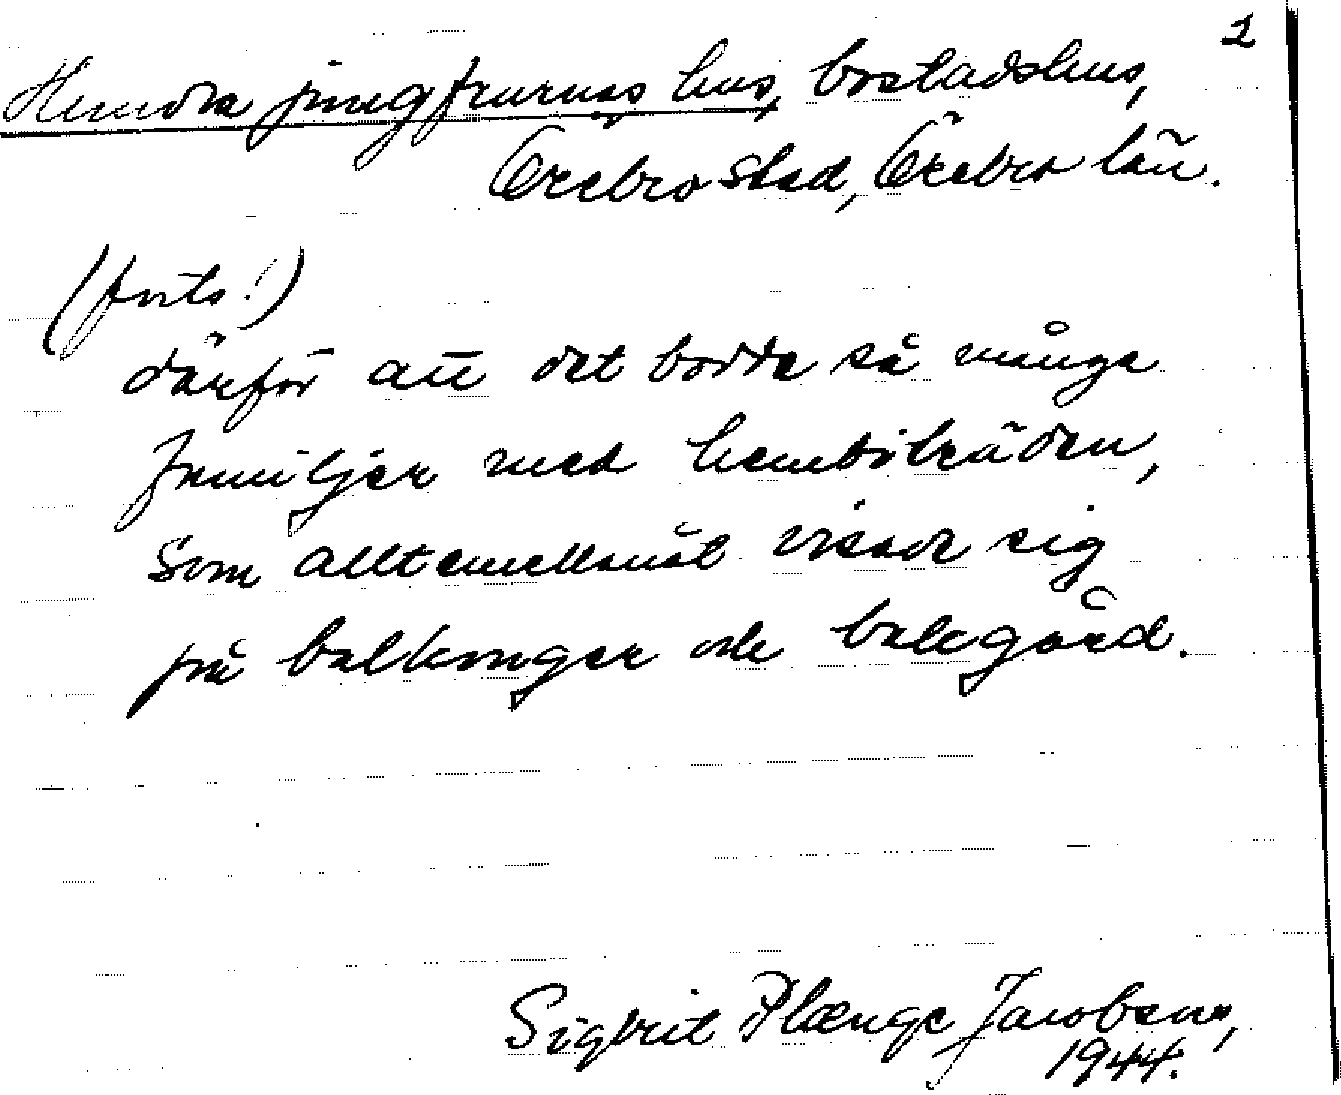 2
Hundra jungfrurnas hus, bostadshus,
Örebro stad, Örebro län.
(forts.)
därför att det bodde så många
familjer med hembiträden,
som alltemellanåt visade sig
på balkonger och bakgård.
Sigbrit Plænge Jacobson,
1944.